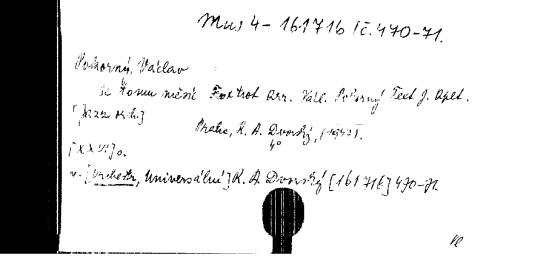 Mus 4 - 161716/č. 470-71.
Pokorný, Václav
Je tomu měsíc Foxtrot Arr. Václ. Pokorný Text J. Aplt.
[Jazz orch.]
Praha, R. A. Dvorský,
4°
[XXVI] o.
v. [Orchestr, Universální] R. A. Dvorský [161716] 470-71.